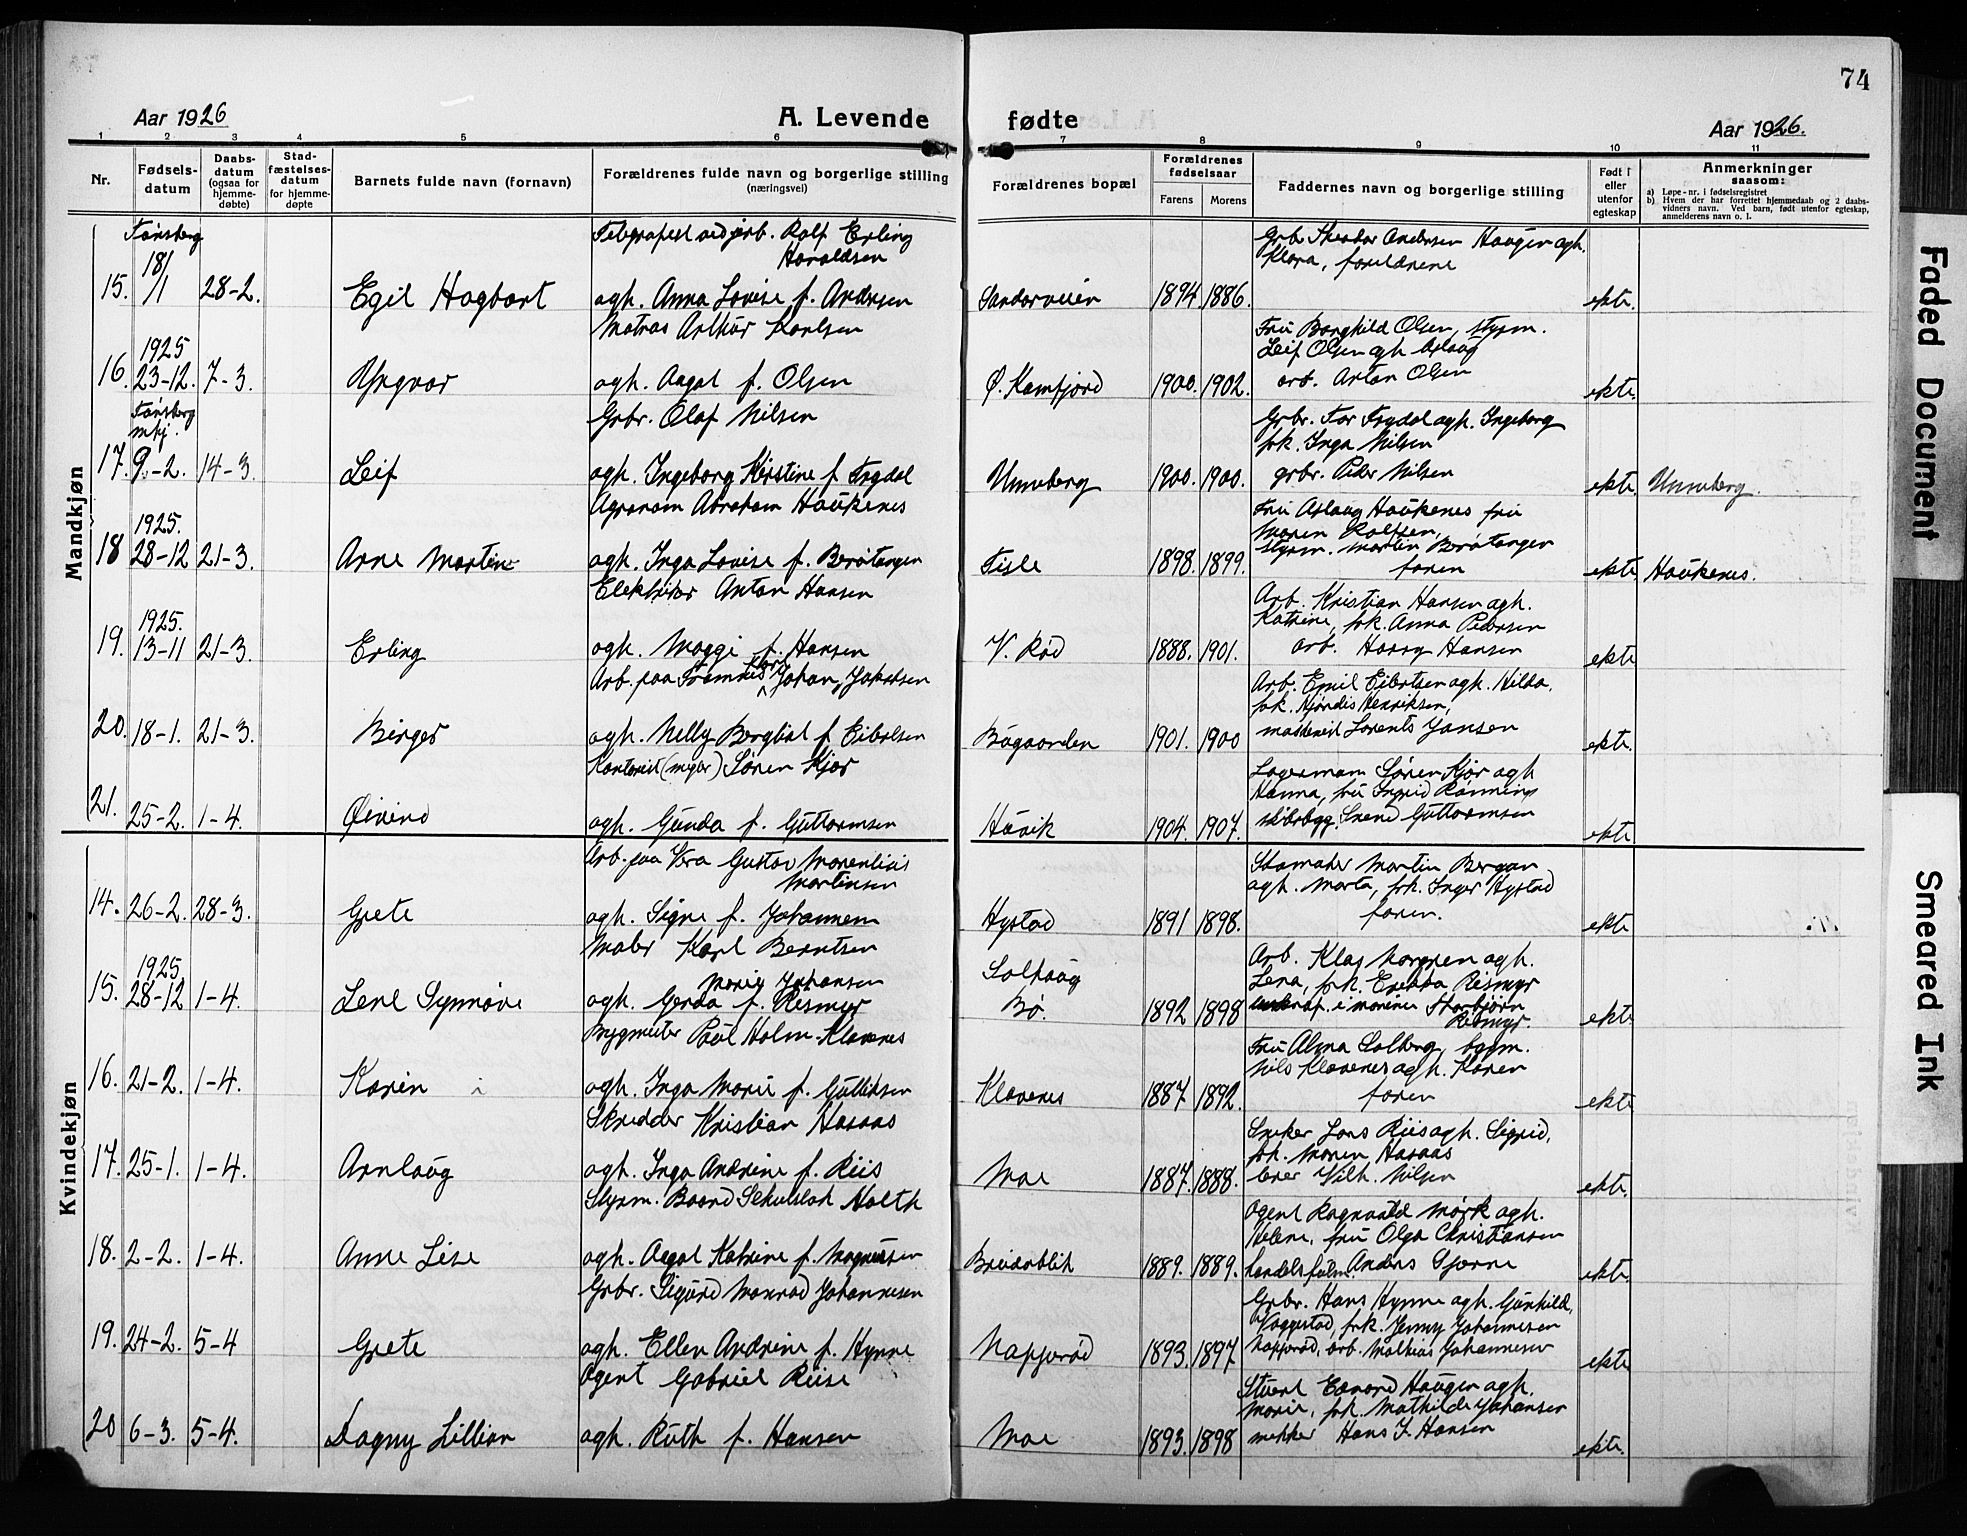 74
Aar 1926
A. Levende
fødte
Aar 1926.
1 2 3 4 5 6 7 8 9 10 11
Nr.
Fødsels-
datum
Daabs-
datum
(ogsaa for
hjemme-
døbte)
Stad-
fæstelses-
datum
for hjemme-
døpte
Barnets fulde navn (fornavn)
Forældrenes fulde navn og borgerlige stilling
(næringsvei)
Forældrenes bopæl
Forældrenes
fødselsaar
Farens Morens
Faddernes navn og borgerlige stilling
Født i
eller
utenfor
egteskap
Anmerkninger
saasom:
a) Løpe-nr. i fødselsregistret
b) Hvem der har forrettet hjemmedaab og 2 daabs-
vidners navn. Ved barn, født utenfor egteskap,
anmelderens navn o. l.
Mandkjøn
Tønsberg
15. 18/1 28-2. Egil Hagbart
Rolf Erling
Haraldsen
agh. Anna Lovise f. Andersen
Sandarveien 1894 1886.
Grbr. Theodor Andersen Haugen agh.
Klara, forældrene
ekte.
16. 1925 23-12. 7-3. Yngvar
Matros Arthur Karlsen
agh. Aagot f. Olsen
Ø. Kamfjord 1900. 1902.
Fru Borghild Olsen, styrm.
Leif Olsen agh. Aslaug
arb. Anton Olsen
ekte.
Tønsberg
17. 9.-2. 14-3. Leif
Grbr. Olaf Nilsen
agh. Ingeborg Kirstine f. Trydal
Unneberg 1900. 1900.
Grbr. Tor Trydal agh. Ingeborg
frk. Inga Nilsen
grbr. Peder Nilsen
ekte. Unneberg.
18 1925. 28-12 21-3. Arne Martin
Agronom Abraham Haukenes
agh. Inga Lovise f. Berøtangen
Tisle 1898. 1899.
Fru Aslaug Haukenes fru
Maren
styrm. Martin Berøtangen
faren
ekte Haukenes.
19. 1925. 13-11 21-3. Erling
Elektriker Anton Hansen
agh. Maggi f. Hansen
V. Rød 1888. 1901.
Arb. Kristian Hansen agh.
Katrine, frk. Anna Pedersen
arb. Harry Hansen
ekte
20. 18-1. 21-3. Birger
Arb. paa Framnes Johan Jakobsen
agh. Nelly Bergliot f. Eilertsen
Bøgaarden 1901. 1900
Arb. Emil Eilertsen agh. Hilda.
frk. Hjørdis Henriksen,
maskinist Lorents Jansen
ekte.
21. 25-2. 1-4. Øivind
Kontorist (meier) Søren Kjær
agh. Gunda f. Guttormsen
Haavik 1904. 1907.
Lagermann Søren Kjær agh
Hanna, fru Ingrid Rønning
skibsbygg. Svend Guttormsen
ekte
Kvindekjøn
14. 26-2. 28-3. Grete
Arb. paa Vera Gustav
Martinsen
agh. Signe f. Johannesen
Hystad 1891 1898.
Martin Bergan
agh. Marta, frk. Inger Hystad
faren.
ekte
15. 1925 28-12 1-4. Lene Synnøve
Maler Karl Berntsen
agh. Gerda Marie Johansen f. Resmyr
Solhaug
Bø. 1892 1898
Arb. Klas Norgren agh.
Lena, frk. Resmyr
i marinen Thorbjørn
Resmyr.
ekte.
16. 21-2. 1-4. Karin
Bygmester Paul Holm-Klavenes
agh. Inga Marie f. Gulliksen
Klavenes 1887 1892.
Fru Alma Solberg, bygm.
Nils Klavenes agh. Karen
faren
ekte
17. 25-1. 1-4. Arnlaug
Skredder Kristian Hasaas
agh. Inga Andrine f. Riis
Moe 1887. 1888.
Snekker Lars Riis agh. Sigrid,
frk. Maren Hasaas
lærer Vilh. Nilsen
ekte.
18. 2-2. 1-4. Anne Lise
Styrm. Baard Holth
agh. Aagot Katrine f. Magnussen
Breidablik 1889. 1889.
Agent Ragnvald Mørk agh.
Helene, fru Olga Christiansen
handelsfulm. Anders Gjerne
ekte.
19. 24-2. 5-4 Grete
Grbr. Sigurd Monrad Johannesen
agh. Ellen Andrine f. Hynne
Napperød 1893. 1897
Grbr. Hans Hynne agh. Gunhild,
Vaggestad, frk. Jenny Johannesen
Napperød, arb. Mathias Johannesen
ekte
20 6-3. 5-4. Dagny Lillian
Agent Gabriel Riise
agh. Ruth f. Hansen
Moe 1893. 1898
Stuert Edvard Haugen agh.
Marie, frk. Mathilde Johansen
mekker Hans J. Hansen
ekte.
Faded Document
Smeared Ink